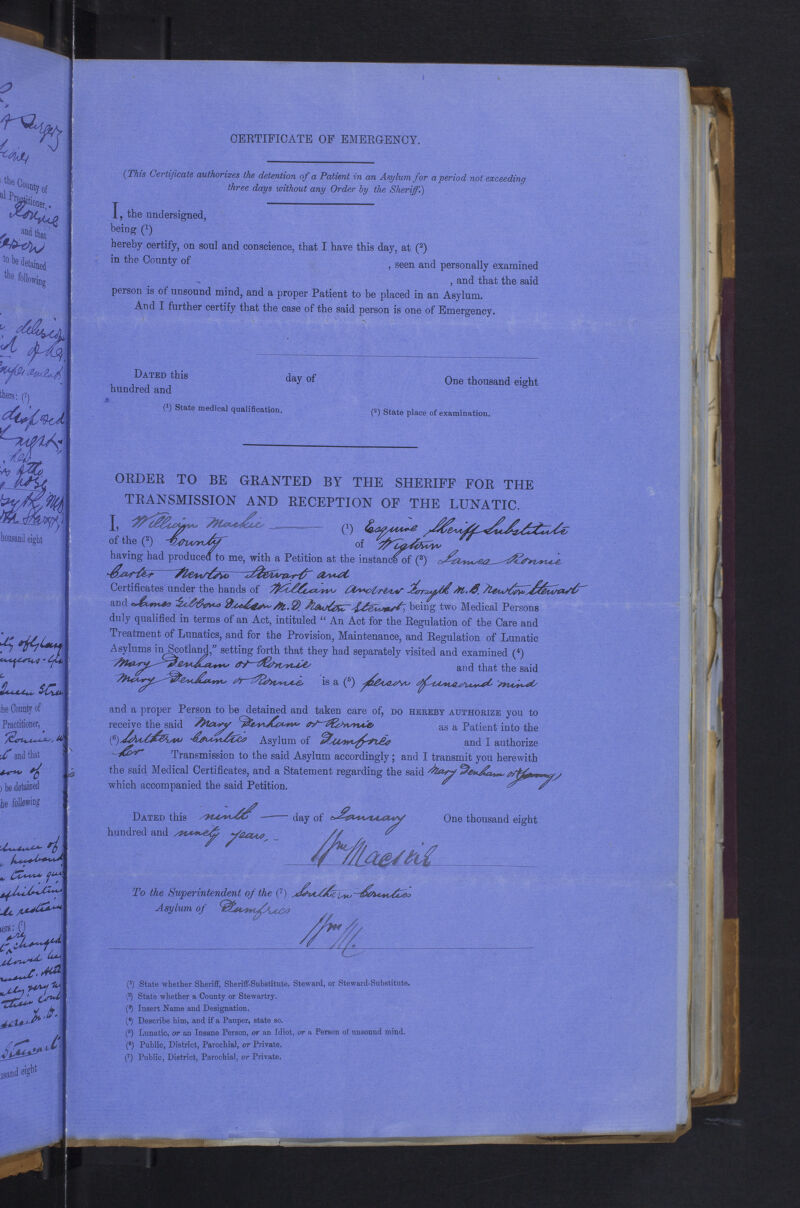 CERTIFICATE OF EMERGENCY.
(This Certificate authorizes the detention of a Patient in an Asylum for a period not exceeding
three days without any Order by the Sheriff.)
I, the undersigned,
being (1)
hereby certify, on soul and conscience, that I have this day, at (2)
in the County of , seen and personally examined
, and that the said
person is of unsound mind, and a proper Patient to be placed in an Asylum.
And I further certify that the case of the said person is one of Emergency.
DATED this day of One thousand eight
hundred and
(1) State medical qualification. (2) State place of examination.
ORDER TO BE GRANTED BY THE SHERIFF FOR THE
TRANSMISSION AND RECEPTION OF THE LUNATIC.
I, William (1) Esquire Sheriff Substitute
of the (2) County of Wigtown
having had produced to me, with a Petition at the instance of (3) James Ronnie
Carter Newton Stewart and
Certificates under the hands of William Andrew Forsyth M.B. Newton Stewart
and James Gibbons Dickson M.D. Newton Stewart, being two Medical Persons
duly qualified in terms of an Act, intituled " An Act for the Regulation of the Care and
Treatment of Lunatics, and for the Provision, Maintenance, and Regulation of Lunatic
Asylums in Scotland," setting forth that they had separately visited and examined (4)
Mary Denham or Ronnie and that the said
Mary Denham or Ronnie is a (5) person of unsound mind
and a proper Person to be detained and taken care of, DO HEREBY AUTHORIZE you to
receive the said Mary Denham or Ronnie as a Patient into the
(6) Southern Counties Asylum of Dumfries and I authorize
her Transmission to the said Asylum accordingly; and I transmit you herewith
the said Medical Certificates, and a Statement regarding the said Mary Denham or
which accompanied the said Petition.
DATED this ninth day of January One thousand eight
hundred and ninety years.
Wm
To the Superintendent of the (7) Southern Counties
Asylum of Dumfries
Wm M.
(1) State whether Sheriff, Sheriff-Substitute, Steward, or Steward-Substitute.
(2) State whether a County or Stewartry.
(3) Insert Name and Designation.
(4) Describe him, and if a Pauper, state so.
(5) Lunatic, or an Insane Person, or an Idiot, or a Person of unsound mind.
(6) Public, District, Parochial, or Private.
(7) Public, District, Parochial, or Private.